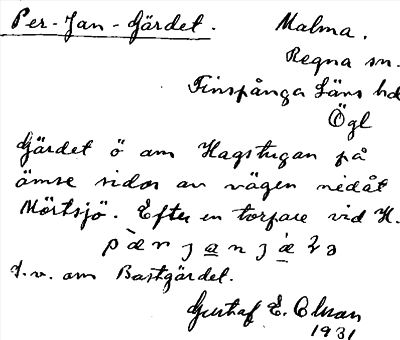 Per-Jan-Gärdet. Malma.
Regna sn.
Finspånga Läns hd
Ögl
Gärdet ö am Hagstugan på
ömse sidor av vägen nedåt
Mörtsjö. Efter en torpare vid H.
T.v. om Bastgärdet.
Gustaf E. Olsson
1931